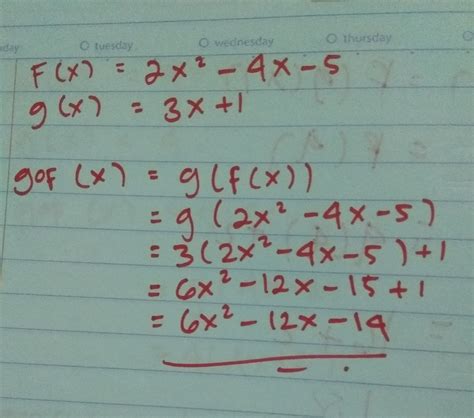 day O tuesday O wednesday O thursday
F(x) = 2x² - 4x - 5
g(x) = 3x + 1
gof (x) = g(f(x))
= g (2x² - 4x - 5)
= 3(2x² - 4x - 5) + 1
= 6x² - 12x - 15 + 1
= 6x² - 12x - 14